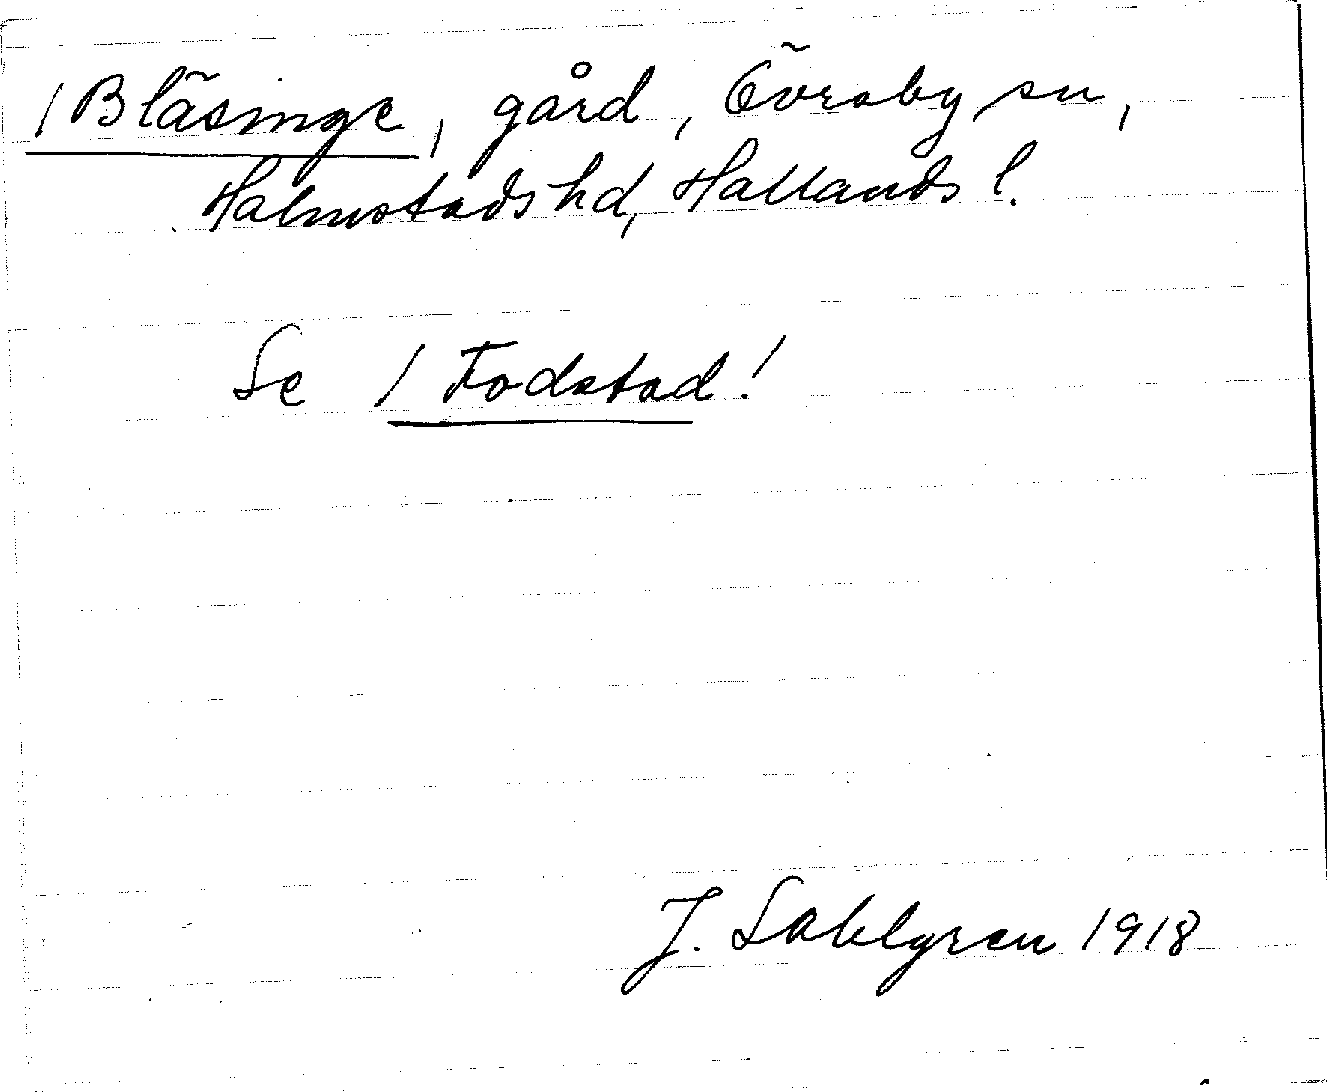 / Bläsinge, gård, Övraby sn,
Halmstads hd, Hallands l.
Se / Fodstad!
J. Sahlgren 1918